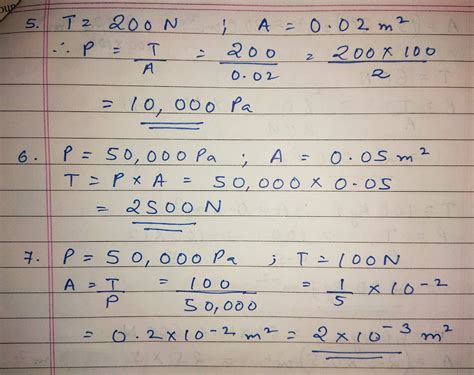 5. T = 200 N ; A = 0.02 m²
∴ P = T/A = 200/0.02 = 200 × 100/2
= 10,000 Pa
6. P = 50,000 Pa ; A = 0.05 m²
T = P × A = 50,000 × 0.05
= 2500 N
7. P = 50,000 Pa ; T = 100 N
A = T/P = 100/50,000 = 1/5 × 10⁻²
= 0.2 × 10⁻² m² = 2 × 10⁻³ m²